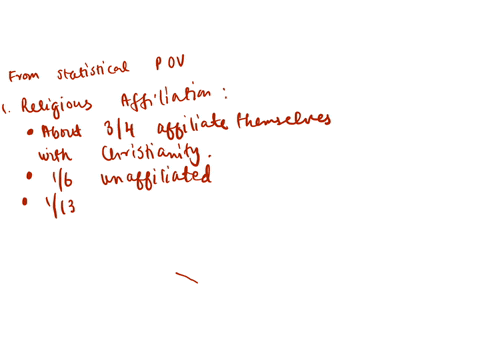 From Statistical POV
1. Religious Affiliation :
• About 3/4 affiliate themselves
with Christianity.
• 1/6 unaffiliated
• 1/13